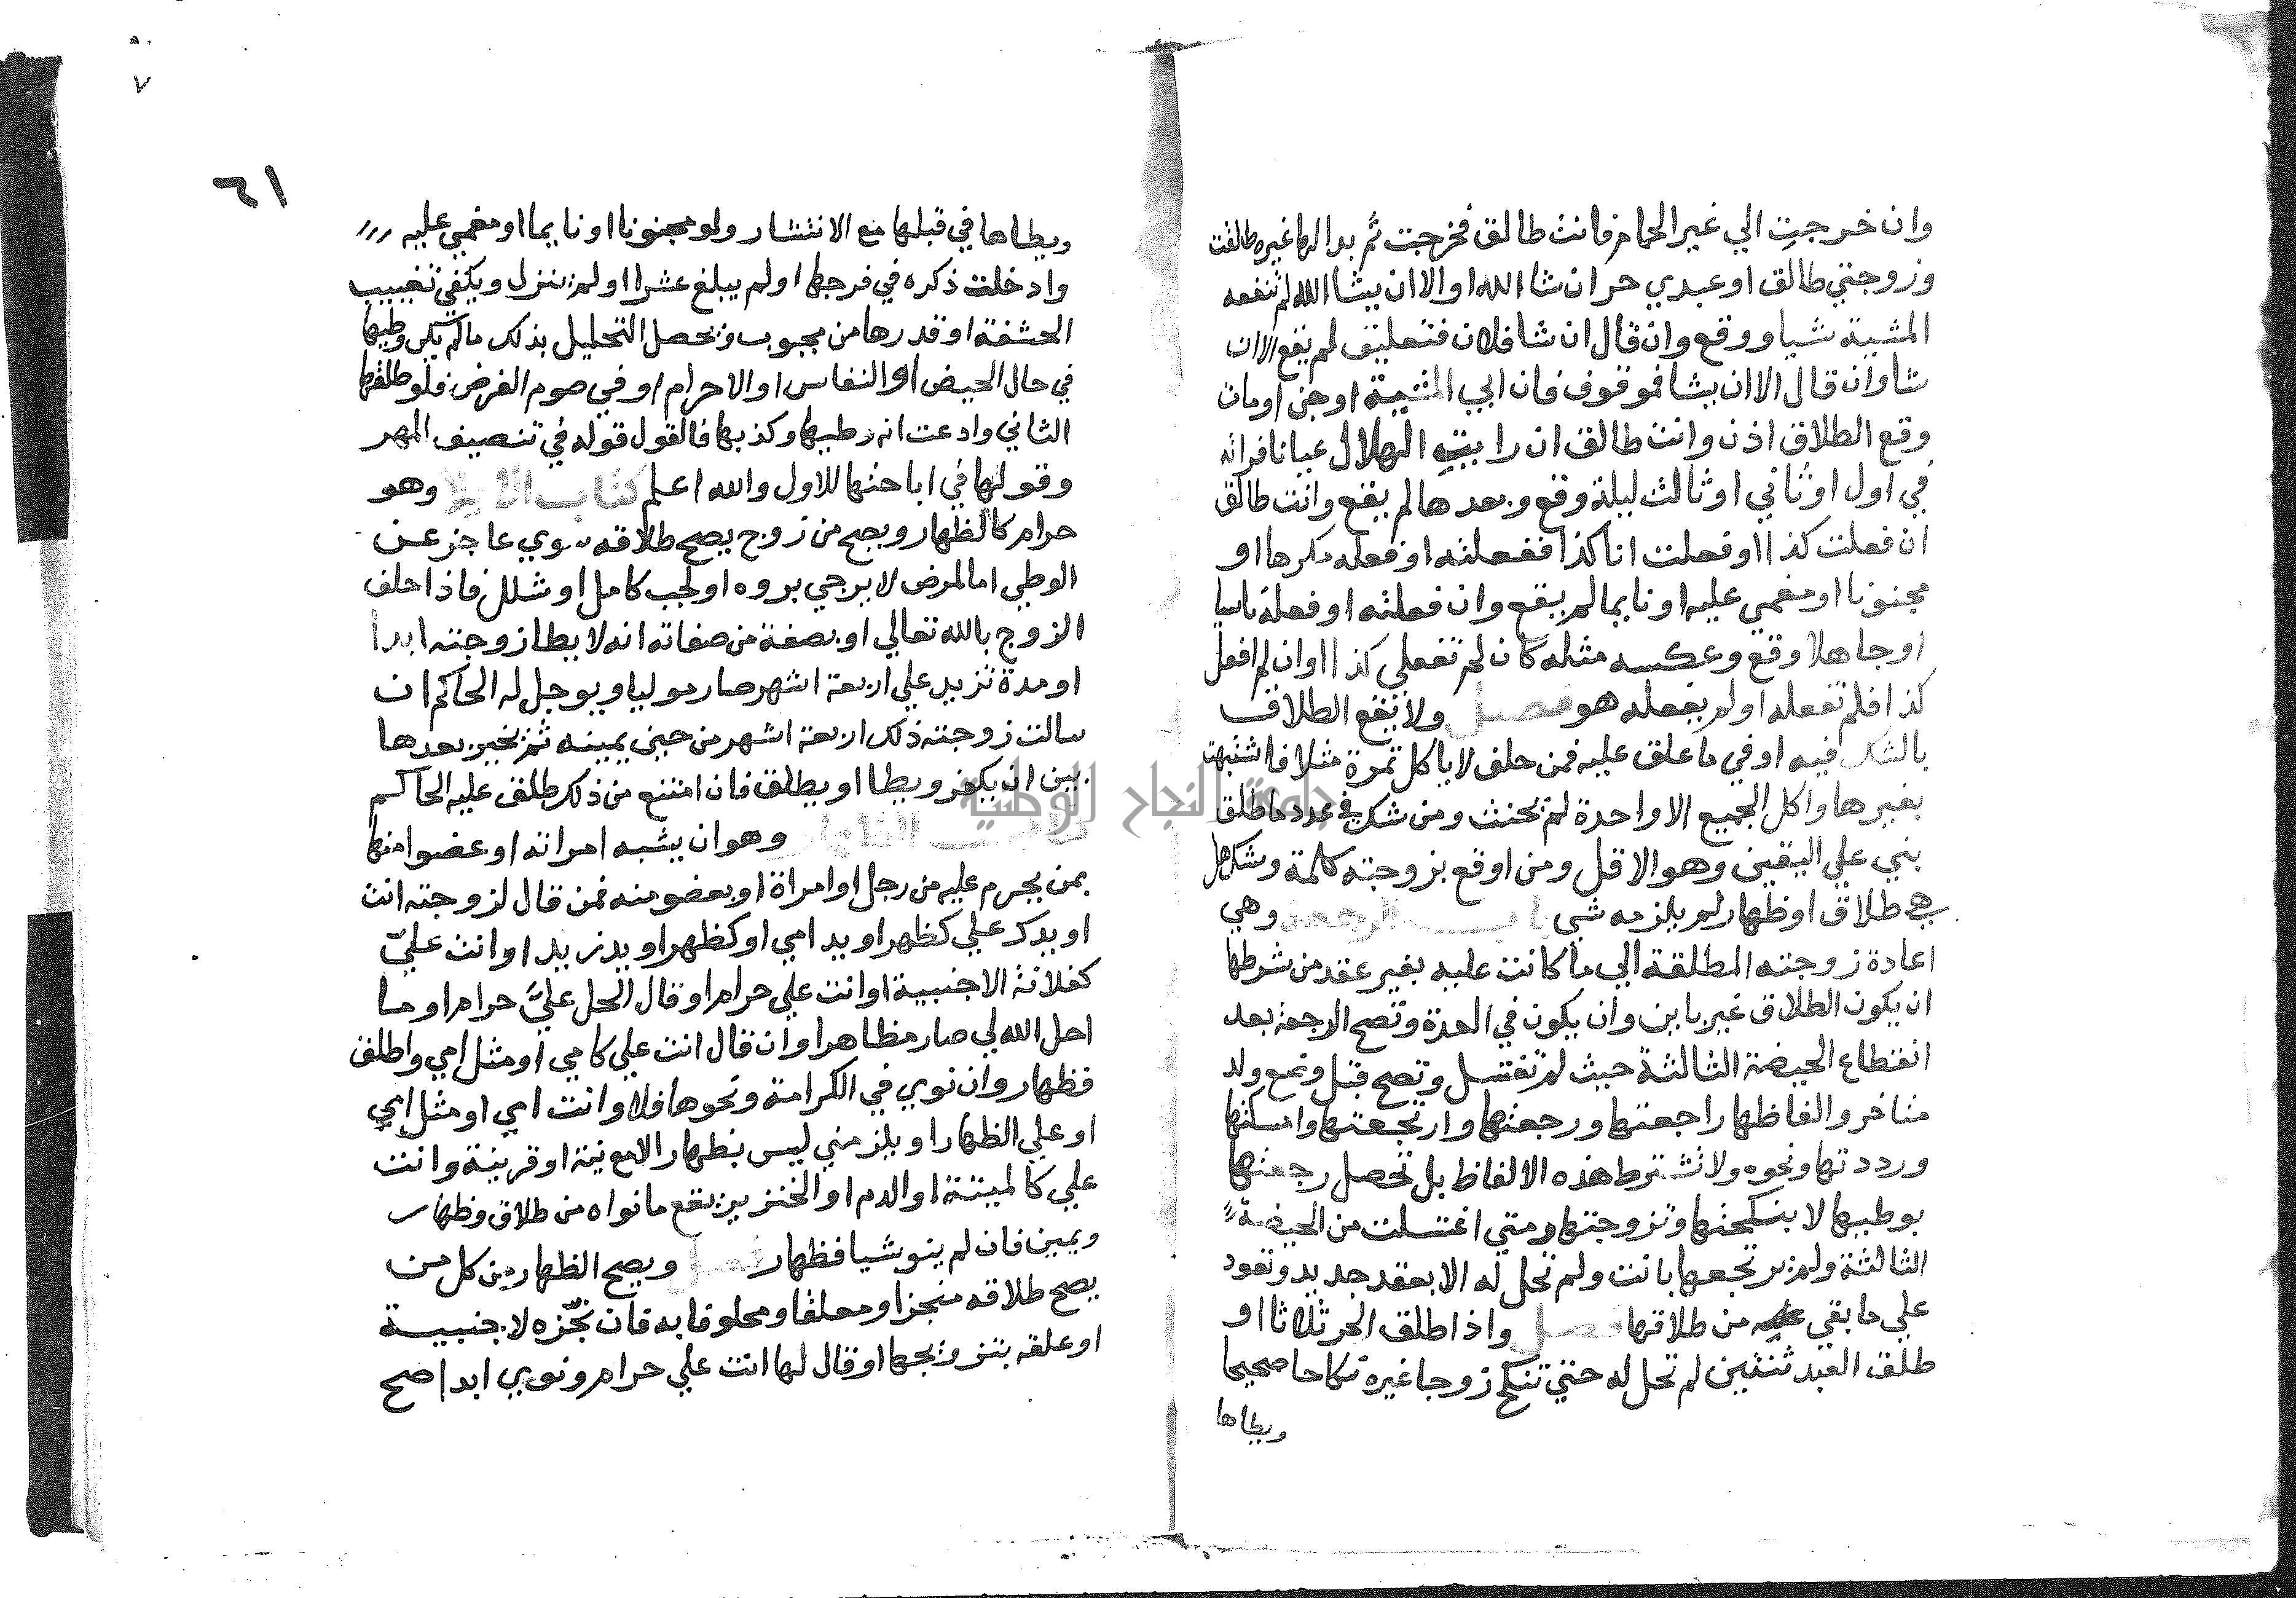 وان خرجت الي غير الحمام فانت طالق فخرجت ثم بدا لها غيره طلقت
وزوجتي طالق او عبدي حر ان شا الله او الا ان يشا الله لم تنفعه
المشية شيا ووقع وان قال ان شا فلان فتعليق لم يقع الا ان
شا وان قال الا ان يشا فموقوف فان ابي المشيية او جن او مات
وقع الطلاق اذن وانت طالق ان رايت الهلال عيانا فراته
في اول او ثاني او ثالث ليلة وقع وبعدها لم يقع وانت طالق
ان فعلت كذا او فعلت انا كذا ففعلته او فعله مكرها او
مجنونا او مغمي عليه او نايما لم يقع وان فعلته او فعله ناسيا
او جاهلا وقع وعكسه مثله كان لم تفعلي كذا او ان لم افعل
كذا فلم تفعله او لم يفعله هو فصل ولا يقع الطلاق
بالشك فيه او في ما علق عليه فمن حلف لا ياكل تمرة مثلا فاشتبهت
بغيرها واكل الجميع الا واحدة لم يحنث ومن شك في عدد ما طلق
بني علي اليقين وهو الاقل ومن اوقع بزوجته كلمة وشك هل
هي طلاق او ظهار لم يلزمه شي باب الرجعة وهي
اعادة زوجته المطلقة الي ما كانت عليه بغير عقد من شرطها
ان يكون الطلاق غير باين وان يكون في العدة وتصح الرجعة بعد
انقطاع الحيضة الثالثة حيث لم تغتسل وتصح قبل وضع ولد
متاخر والفاظها راجعتها ورجعتها وارتجعتها وامسكتها
ورددتها ونحوه ولا تشترط هذه الالفاظ بل تحصل رجعتها
بوطيها لا بنكحتها وتزوجتها ومتي اغتسلت من الحيضة
الثالثة ولم يرتجعها بانت ولم تحل له الا بعقد جديد وتعود
علي ما بقي من طلاقها فصل واذا طلق الحر ثلاثا او
طلق العبد ثنتين لم تحل له حتي تنكح زوجا غيره نكاحا صحيحا
ويطاها
٦١
ويطاها في قبلها مع الانتشار ولو مجنونا او نايما او مغمي عليه
وادخلت ذكره في فرجها او لم يبلغ عشرا او لم ينزل ويكفي تغييب
الحشفة او قدرها من مجبوب ويحصل التحليل بذلك ما لم يكن وطيها
في حال الحيض او النفاس او الاحرام او في صوم الفرض فلو طلقها
الثاني وادعت انه وطيها وكذبها فالقول قوله في تنصيف المهر
وقولها في اباحتها للاول والله اعلم كتاب الايلا وهو
حرام كالظهار ويصح من زوج يصح طلاقه سوي عاجز عن
الوطي اما لمرض لا يرجي بروه او لجب كامل او شلل فاذا حلف
الزوج بالله تعالي او بصفة من صفاته انه لا يطا زوجته ابدا
او مدة تزيد علي اربعة اشهر صار موليا ويوجل له الحاكم ان
سالت زوجته ذلك اربعة اشهر من حين يمينه ثم يخير بعدها
بين ان يكفر ويطا او يطلق فان امتنع من ذلك طلق عليه الحاكم
كتاب الظهار وهو ان يشبه امراته او عضوا منها
بمن يحرم عليه من رجل او امراة او بعضو منه فمن قال لزوجته انت
او يدك علي كظهر او يد امي او كظهر او يد زيد او انت علي
كفلانة الاجنبية او انت علي حرام او قال الحل علي حرام او ما
احل الله لي صار مظاهرا وان قال انت علي كامي او مثل امي واطلق
فظهار وان نوي في الكرامة ونحوها فلا وانت امي او مثل امي
او علي الظهار او يلزمني ليس بظهار الا مع نية او قرينة وانت
علي كالميتة او الدم او الخنزير يقع ما نواه من طلاق وظهار
ويمين فان لم ينو شيا فظهار فصل ويصح الظهار من كل من
يصح طلاقه منجزا ومعلقا ومحلوفا به فان نجزه لاجنبية
او علقه بتزويجها او قال لها انت علي حرام ونوي ابدا صح
جامعة النجاح الوطنية